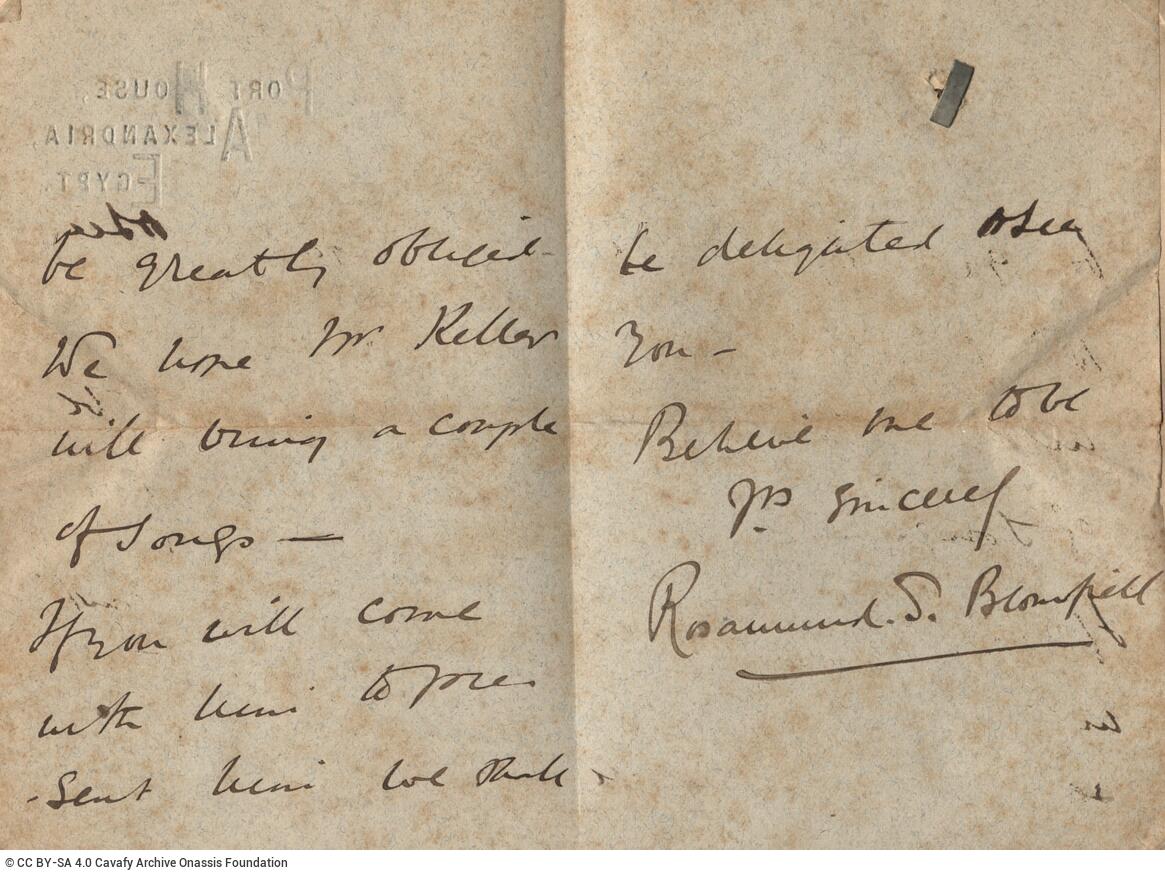 PORT HOUSE,
ALEXANDRIA,
EGYPT.
be greatly obliged -
We hope Mr Kellar
will bring a couple
of songs —
If you will come
with him to pre
- sent him we shall
be delighted to see
you -
Believe me to be
Yrs sincerely
Rosamund. S. Blomfield
© CC BY-SA 4.0 Cavafy Archive Onassis Foundation